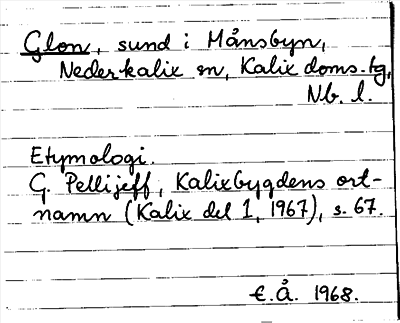 Glon, sund i Månsbyn,
Nederkalix sn, Kalix doms.tg,
Nb. l.
Etymologi.
G. Pellijeff, Kalixbygdens ort-
namn (Kalix del 1, 1967), s. 67.
E.Å. 1968.